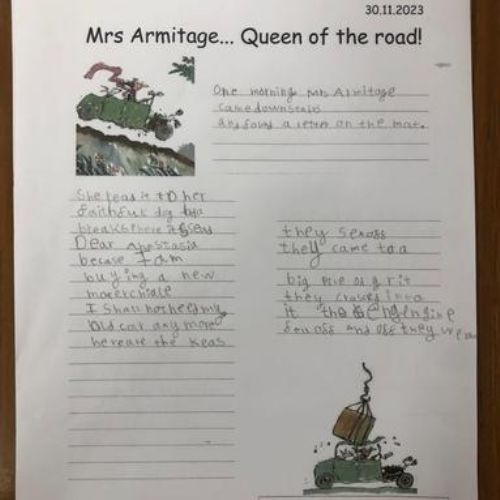 30.11.2023
Mrs Armitage... Queen of the road!
One morning Mrs Armitage
came downstairs
and found a letter on the mat.
She read it to her
faithful dog
breaksphere it say
Dear Anastasia
becase I am
buying a new
I Shall not need my
old car any more
here are the keas
they
they came to a
big pile of grit
they
it the engine
fell off and off they